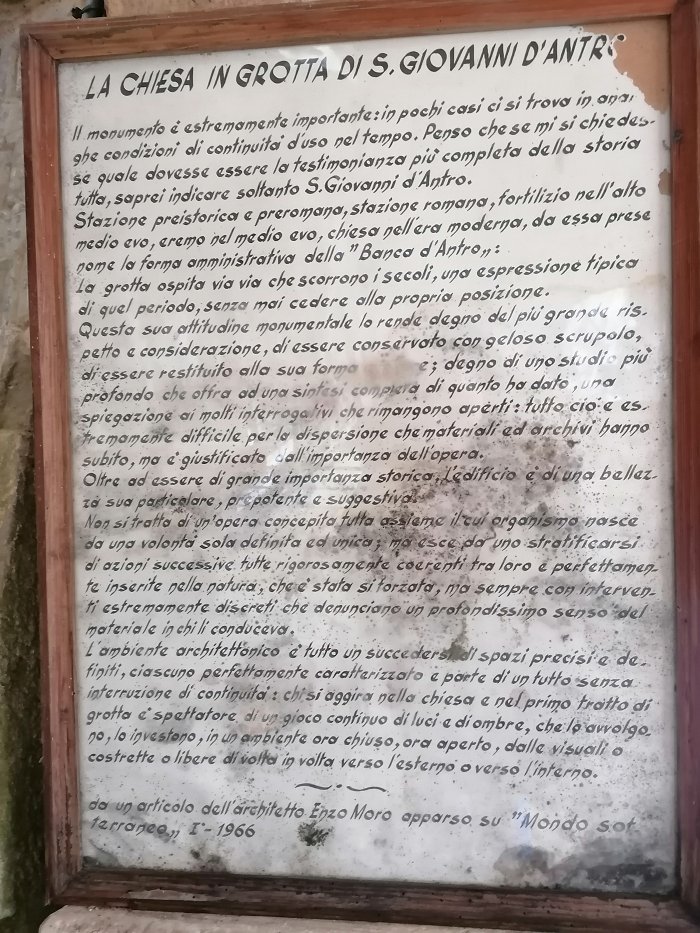 LA CHIESA IN GROTTA DI S. GIOVANNI D'ANTR
Il monumento è estremamente importante: in pochi casi ci si trova in
ghe condizioni di continuità d'uso nel tempo. Penso che se mi si chiedes-
se quale dovesse essere la testimonianza più completa della storia
tutta, saprei indicare soltanto S. Giovanni d'Antro.
Stazione preistorica e preromana, stazione romana, fortilizio nell'alto
medio evo, eremo nel medio evo, chiesa nell'era moderna, da essa prese
nome la forma amministrativa della "Banca d'Antro„:
La grotta ospita via via che scorrono i secoli, una espressione tipica
di quel periodo, senza mai cedere alla propria posizione.
Questa sua attitudine monumentale lo rende degno del più grande ris-
petto e considerazione, di essere conservato con geloso scrupolo,
di essere restituito alla sua forma e; degno di uno studio più
profondo che offra ad una sintesi completa di quanto ha dato, una
spiegazione ai molti interrogativi che rimangono aperti: tutto ciò è es-
tremamente difficile per la dispersione che materiali ed archivi hanno
subito, ma è giustificato dall'importanza dell'opera.
Oltre ad essere di grande importanza storica, l'edificio è di una bellez-
za sua particolare, prepotente e suggestiva.
Non si tratta di un'opera concepita tutta assieme il cui organismo nasce
da una volontà sola definita ed unica; ma esce da uno stratificarsi
di azioni successive tutte rigorosamente coerenti tra loro e perfettamen-
te inserite nella natura, che è stata sì forzata, ma sempre con interven-
ti estremamente discreti che denunciano un profondissimo senso del
materiale in chi li conduceva.
L'ambiente architettònico è tutto un succedersi di spazi precisi e de-
finiti, ciascuno perfettamente caratterizzato e parte di un tutto senza
interruzione di continuità: chi si aggira nella chiesa e nel primo tratto di
grotta è spettatore di un gioco continuo di luci e di ombre, che lo avvolgo-
no, lo investono, in un ambiente ora chiuso, ora aperto, dalle visuali o
costrette o libere di volta in volta verso l'esterno o verso l'interno.
da un articolo dell'architetto Enzo Moro apparso su "Mondo sot-
terraneo„ I°- 1966